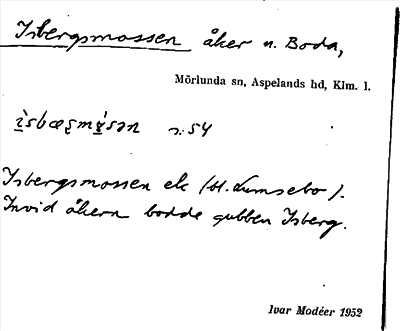 Isbergsmossen åker n. Boda,
Mörlunda sn, Aspelands hd, Klm. l.
ìsbæʂmɤ̀sən s. 54
Isbergsmossen ek (st. Lumsebo).
Invid åkern bodde gubben Isberg.
Ivar Modéer 1952